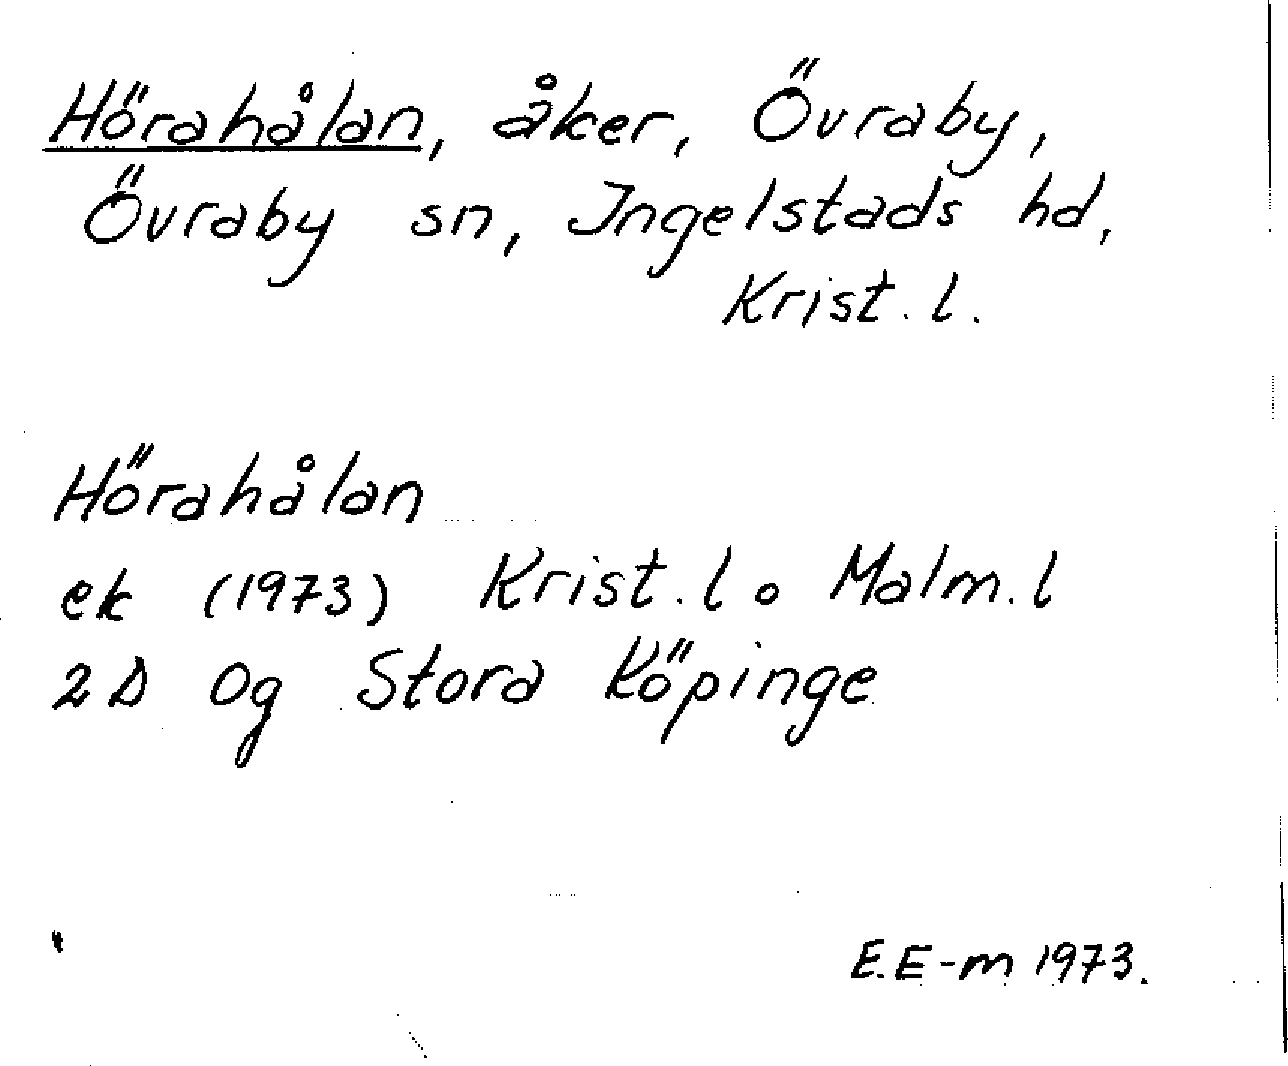 Hörahålan, åker, Övraby,
Övraby sn, Ingelstads hd,
Krist. l.
Hörahålan
ek (1973) Krist. l o Malm. l
2D Og Stora Köpinge
E.E-m 1973.